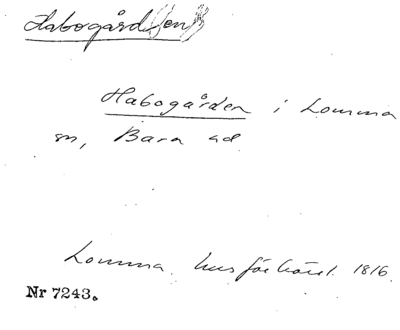 Habogård(en)
Habogården i Lomma
sn, Bara hd
Lomma husförhörsl. 1816.
Nr 7243.